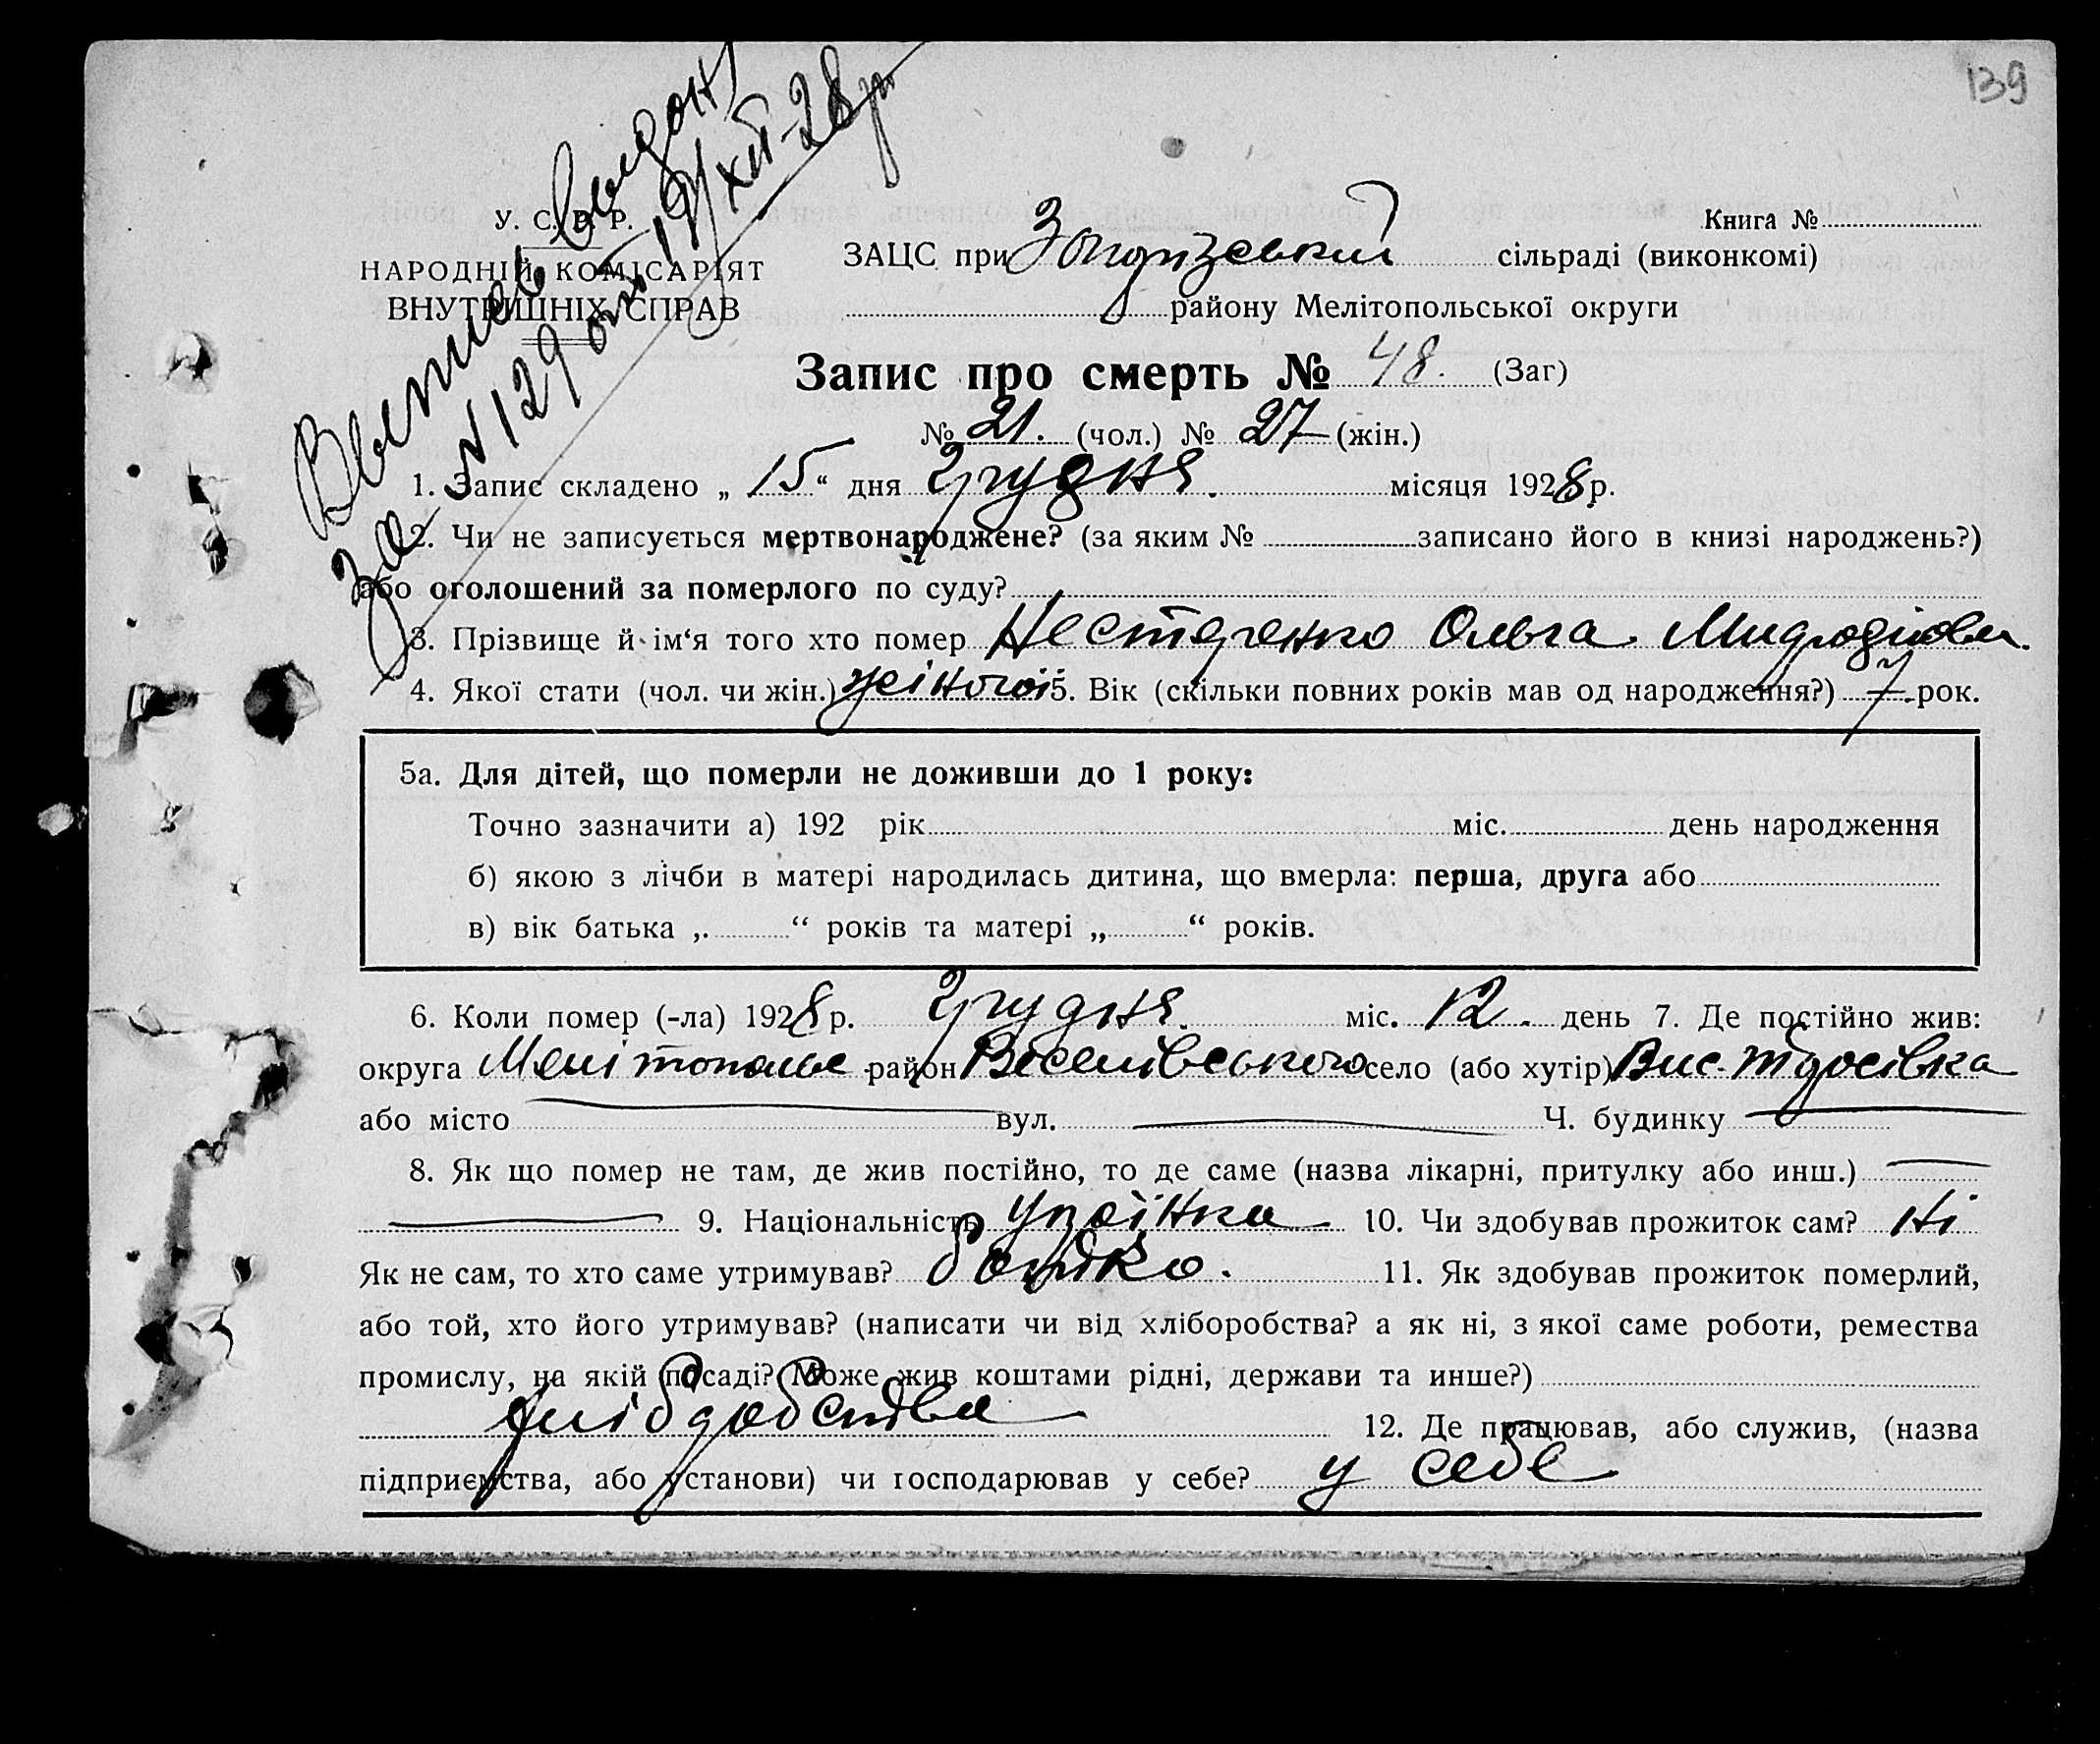 139
Выпись выдана
за N 129 от 19/XII-28 р.
У. С. Р. Р.
НАРОДНІЙ КОМІСАРІЯТ
ВНУТРІШНІХ СПРАВ
Книга №
ЗАЦС при сільраді (виконкомі)
району Мелітопольської округи
Запис про смерть № 48. (Заг)
№ 21. (чол.) № 27 (жін.)
1. Запис складено „ 15 “ дня Грудня. місяця 1928 р.
2. Чи не записується мертвонароджене? (за яким № записано його в книзі народжень?)
або оголошений за померлого по суду?
3. Прізвище й ім‘я того хто помер Нестеренко Ольга
4. Якої стати (чол. чи жін.) жіночої 5. Вік (скільки повних років мав од народження?) 7 рок.
5а. Для дітей, що померли не доживши до 1 року:
Точно зазначити а) 192 рік міс. день народження
б) якою з лічби в матері народилась дитина, що вмерла: перша, друга або
в) вік батька „ “ років та матері „ “ років.
6. Коли помер (-ла) 1928 р. Грудня. міс. 12. день 7. Де постійно жив:
округа Мелітополье район Веселівського село (або хутір)
або місто — вул. — Ч. будинку —
8. Як що помер не там, де жив постійно, то де саме (назва лікарні, притулку або инш.) —
— 9. Національність Україінка 10. Чи здобував прожиток сам? Ні
Як не сам, то хто саме утримував? батько. 11. Як здобував прожиток померлий,
або той, хто його утримував? (написати чи від хліборобства? а як ні, з якої саме роботи, ремества
промислу, на якій посаді? Може жив коштами рідні, держави та инше?)
хліборобства 12. Де працював, або служив, (назва
підприємства, або установи) чи господарював у себе? у себе